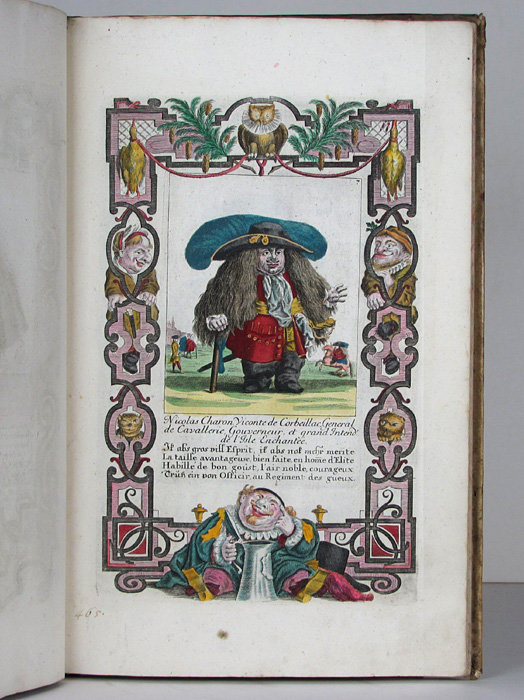 Nicolas Charon Viconte de Corbeillac, General
de Cavallerie, Gouverneur, et grand Intend.
de l'Isle Enchantée.
gros Esprit, if abs not mehr merite
La taille avantageuse, bien faite, en home d'Elite
Habille de bon goust, l'air noble, courageux
ein von Officir, au Regiment des gueux.
465.